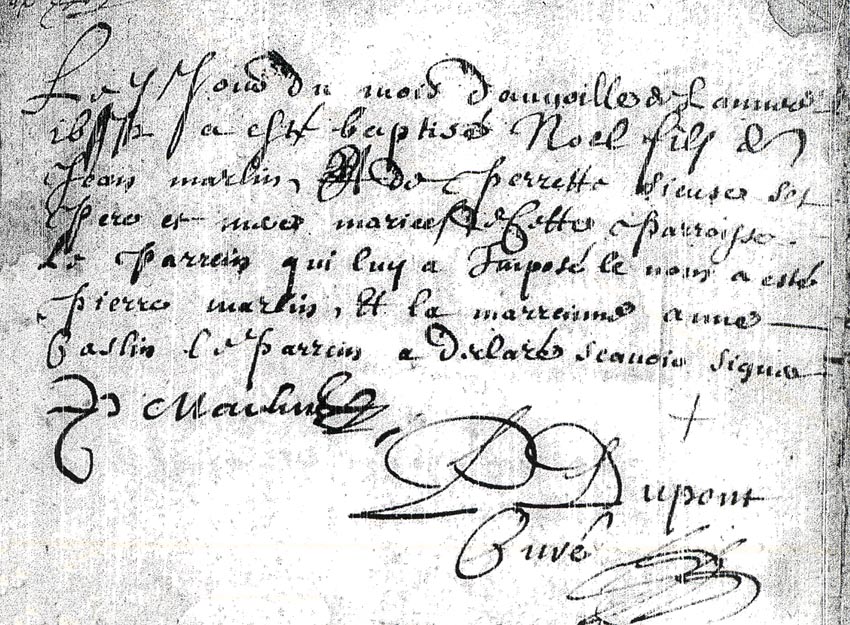 Le Jour du mois de lannee
a este baptisé Noel fils de
Jean martin, Et de Perrette ses
Pere et mere mariees de Cette Parroisse
Le Parrein qui luy a Imposé le nom a esté
Pierre martin, Et la marreinne anne
Gaslin le Parrein a declaré scauoir signer
P Martin
P Dupont
Curé